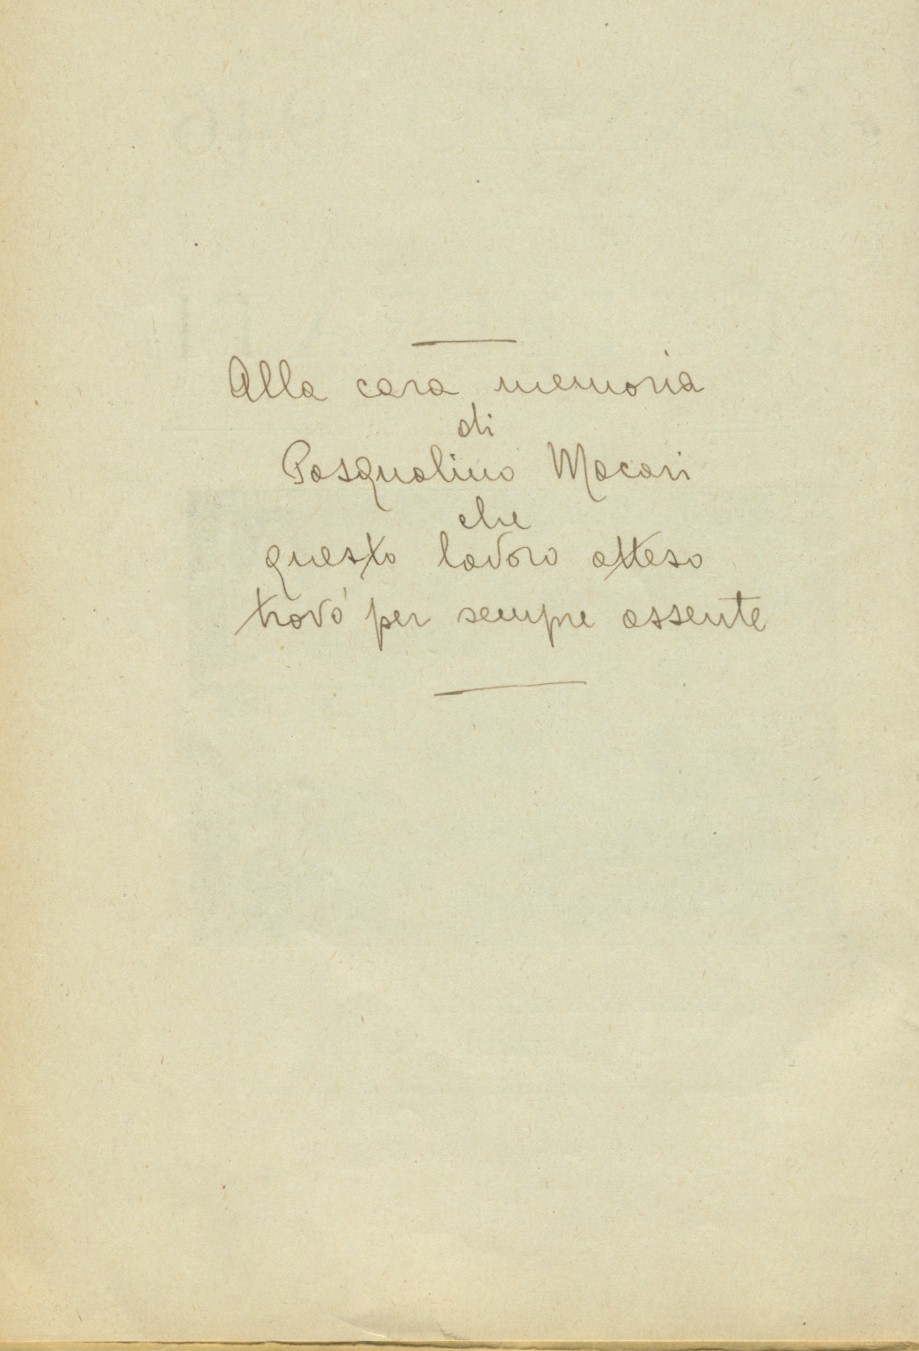 Alla cara memoria
di
Pasqualino Macari
che
questo lavoro atteso
trovò per sempre assente